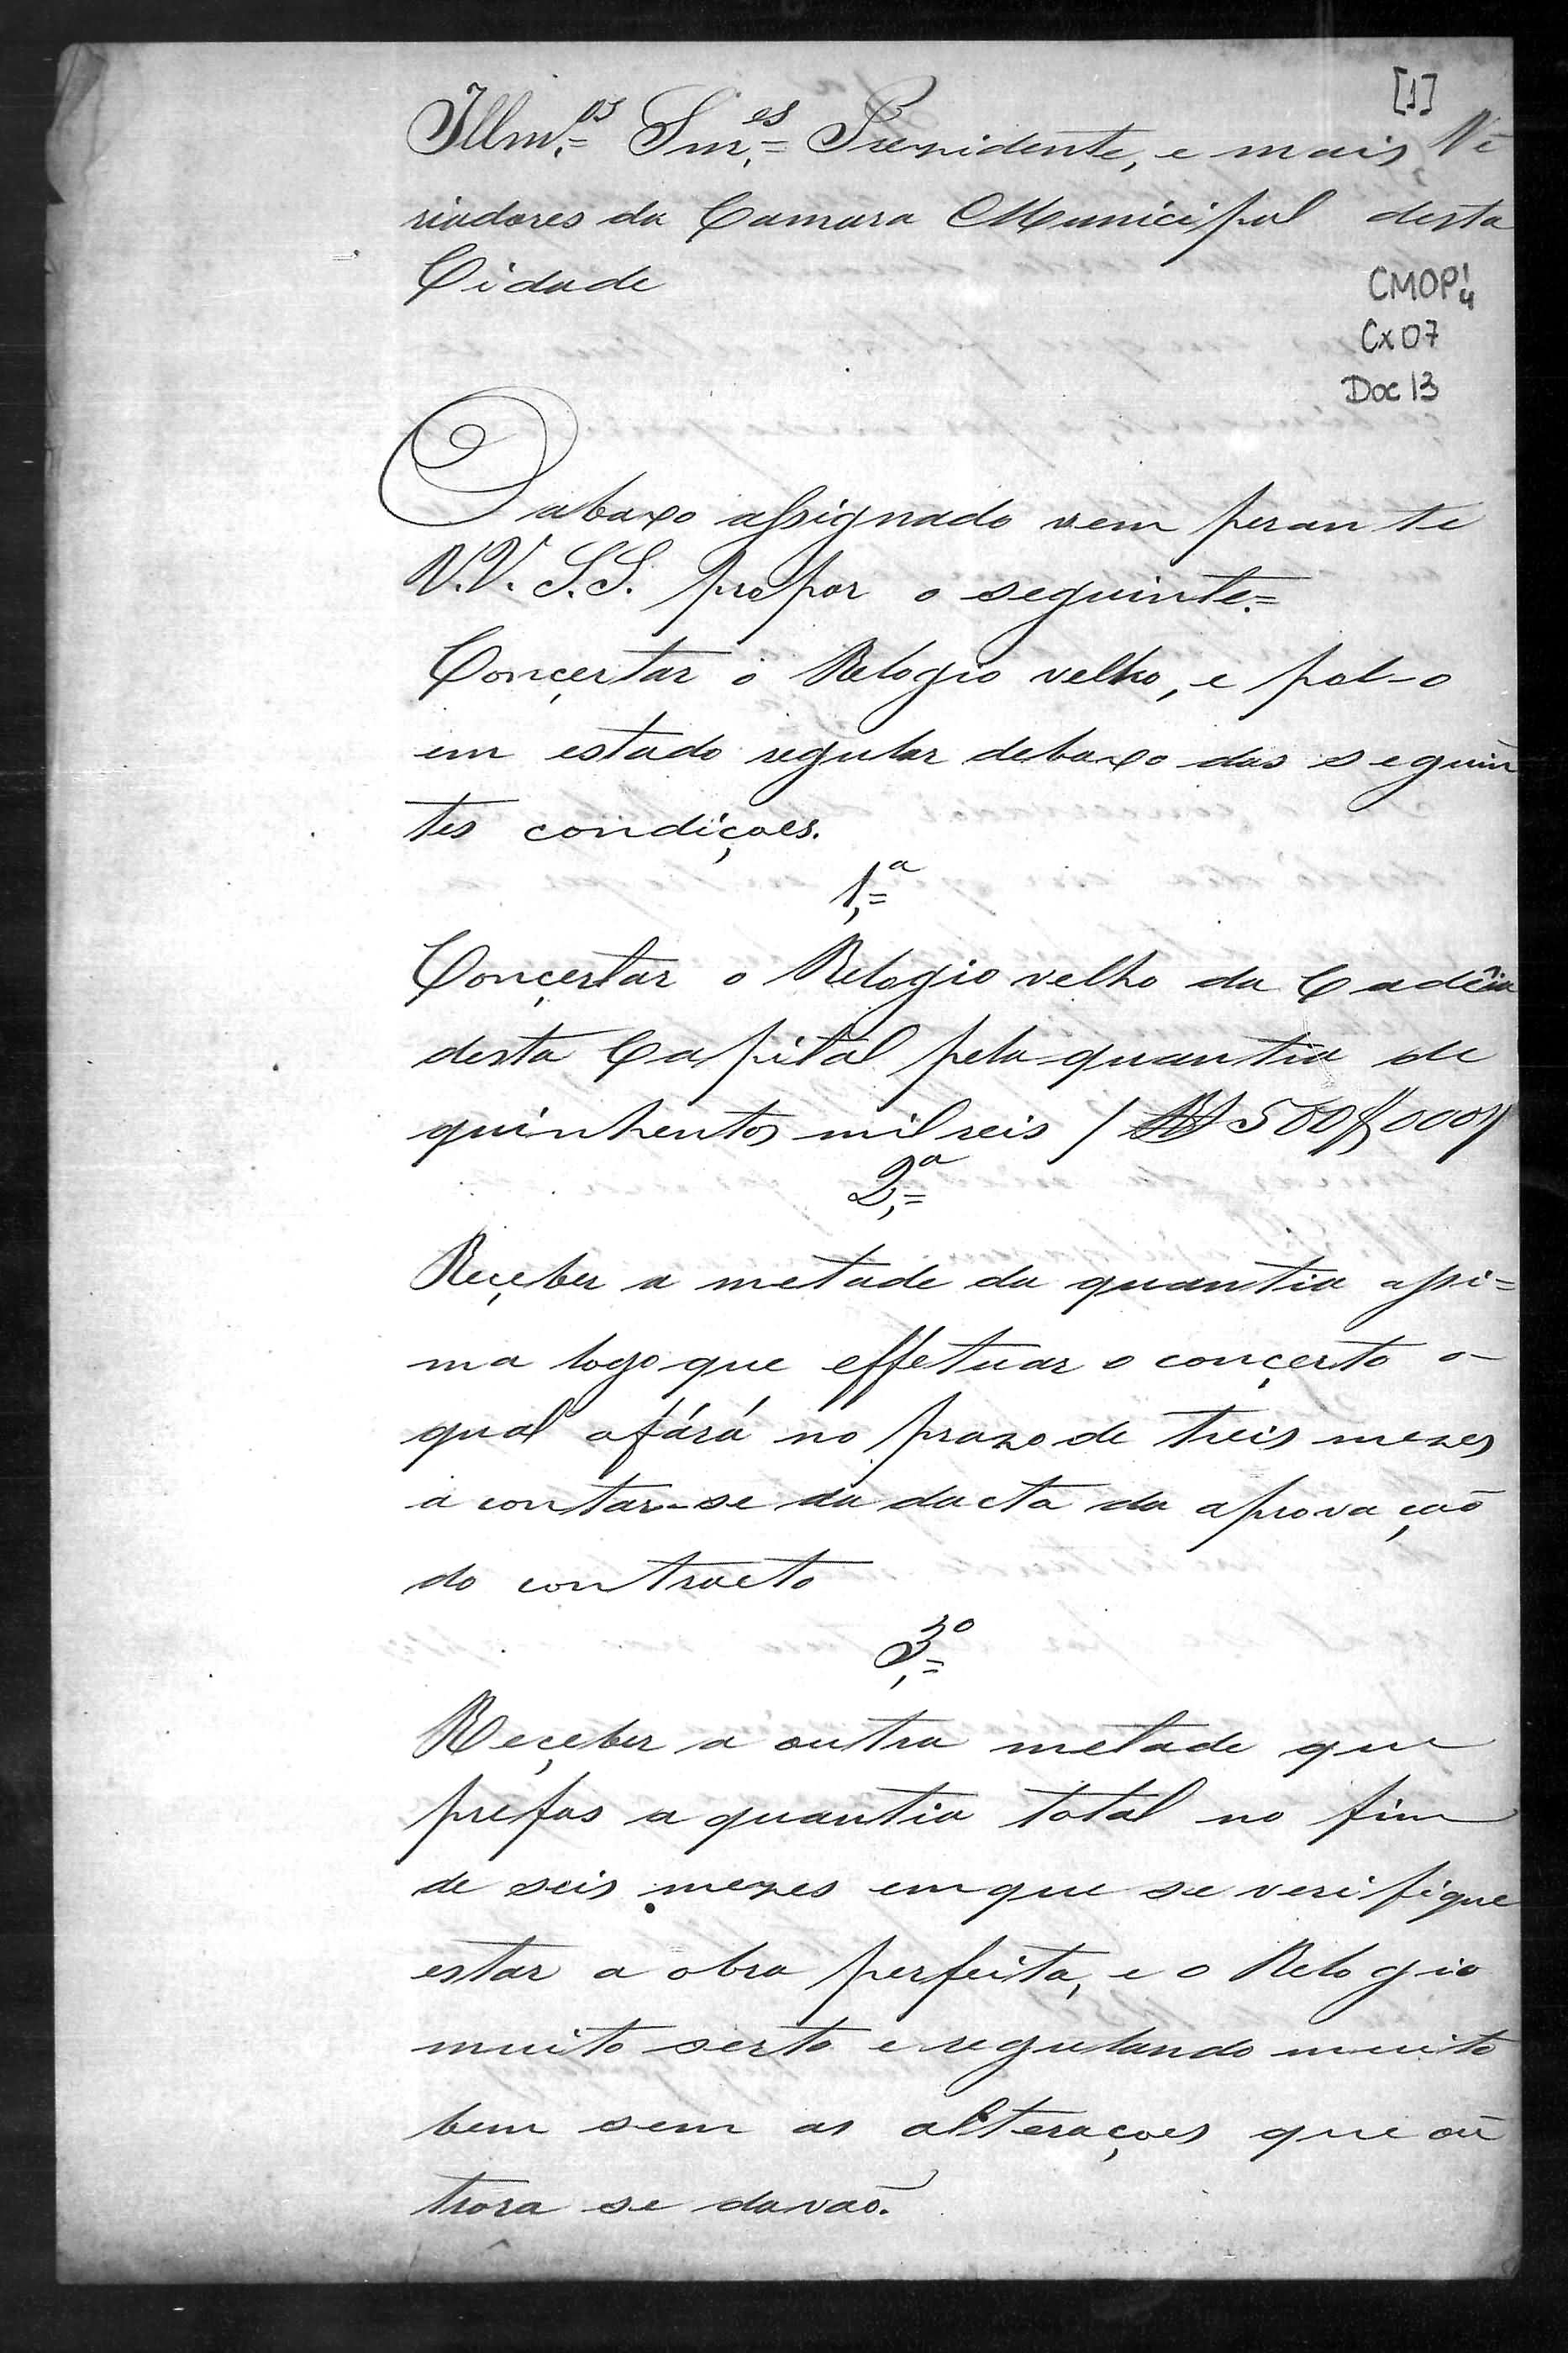 [1]
Illm.os Snr.es Prezidente, e mais Ve
riadores da Camara Municipal desta
Cidade
CMOP 1/4
Cx 07
Doc 13
O abaxo assignado vem perante
V.V. S.S. propor o seguinte.=
Conçertar o Relogio velho, e pol-o
em estado regular debaxo das seguin
tes condiçoes.
1.a
Conçertar o Relogio velho da Cadêia
desta Capital pela quantia de
quinhentos mil reis / R 500$000//
2.a
Reçeber a metade da quantia assi=
ma logo que effetuar o conçerto o-
qual o fárá no prazo de treis mezes
a contar-se da dacta da aprovação
do contracto
3.o
Reçeber a outra metade que
prefas a quantia total no fim
de seis mezes em que se verifique
estar a obra perfeita, e o Relogio
muito serto e regulando muito
bem sem as alteraçoes que ou
trora se davaõ.